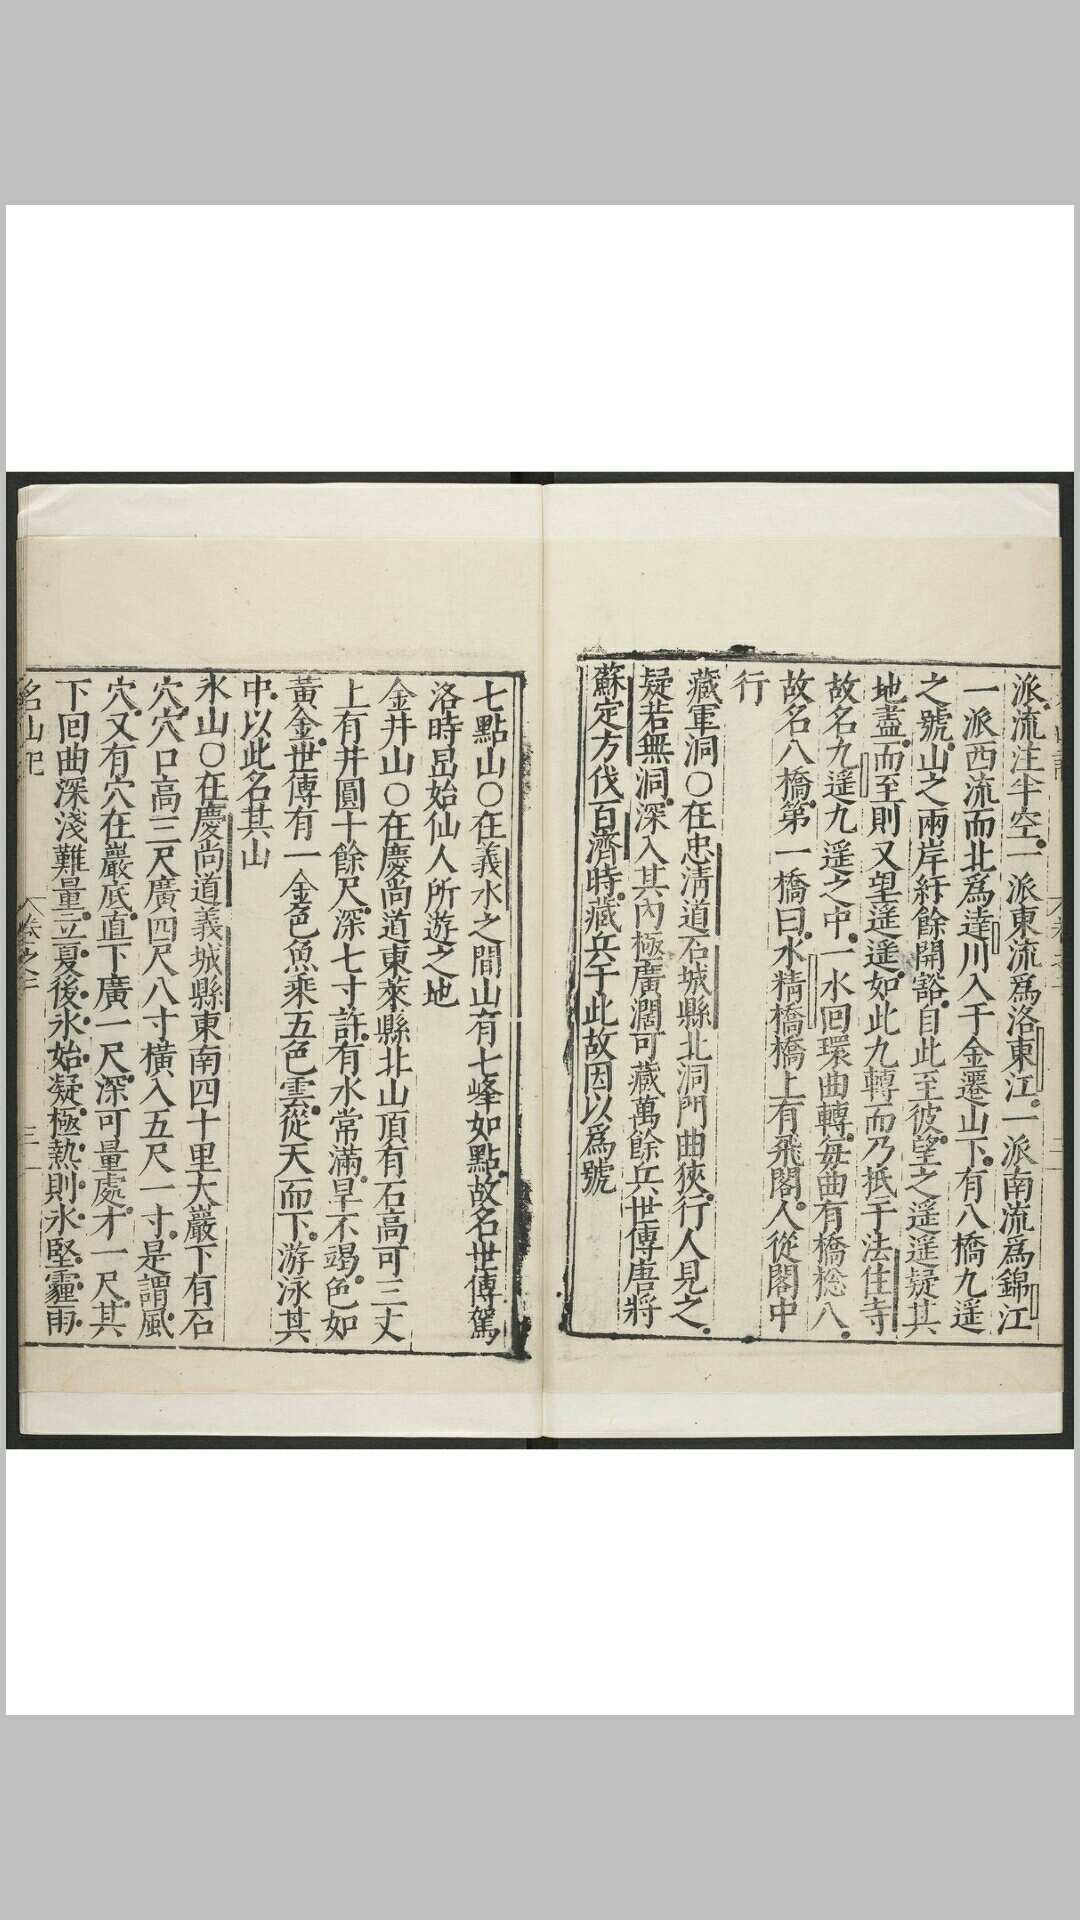 派流注半空一派東流爲洛東江一派南流爲錦江
一派西流而北爲達川入于金遷山下有八橋九遥
之號山之兩岸紆餘開豁自此至彼望之遥遥疑其
地盡而至則又望遥遥如此九轉而乃抵于法住寺
故名九遥九遥之中一水回環曲轉每曲有橋棯八
故名八橋第一橋曰水精橋橋上有飛閣人從閣中
行
藏軍洞○在忠淸道石城縣北洞門曲狹行人見之
疑若無洞深入其內極廣濶可藏萬餘兵世傳唐將
蘇定方伐百濟時藏兵于此故因以爲號
七點山○在義水之間山有七峰如點故名世傳駕
洛時昷始仙人所遊之地
金井山○在慶尚道東萊縣北山頂有石高可三丈
上有井圓十餘尺深七寸許有水常滿旱不竭色如
黃金世傳有一金色魚乘五色雲從天而下游泳其
中以此名其山
氷山○在慶尚道義城縣東南四十里大巖下有石
穴穴口高三尺廣四尺八寸橫入五尺一寸是謂風
穴又有穴在巖底直下廣一尺深可量處才一尺其
下回曲深淺難量立夏後氷始凝極熱則氷堅霾雨
名山記
卷之三
三